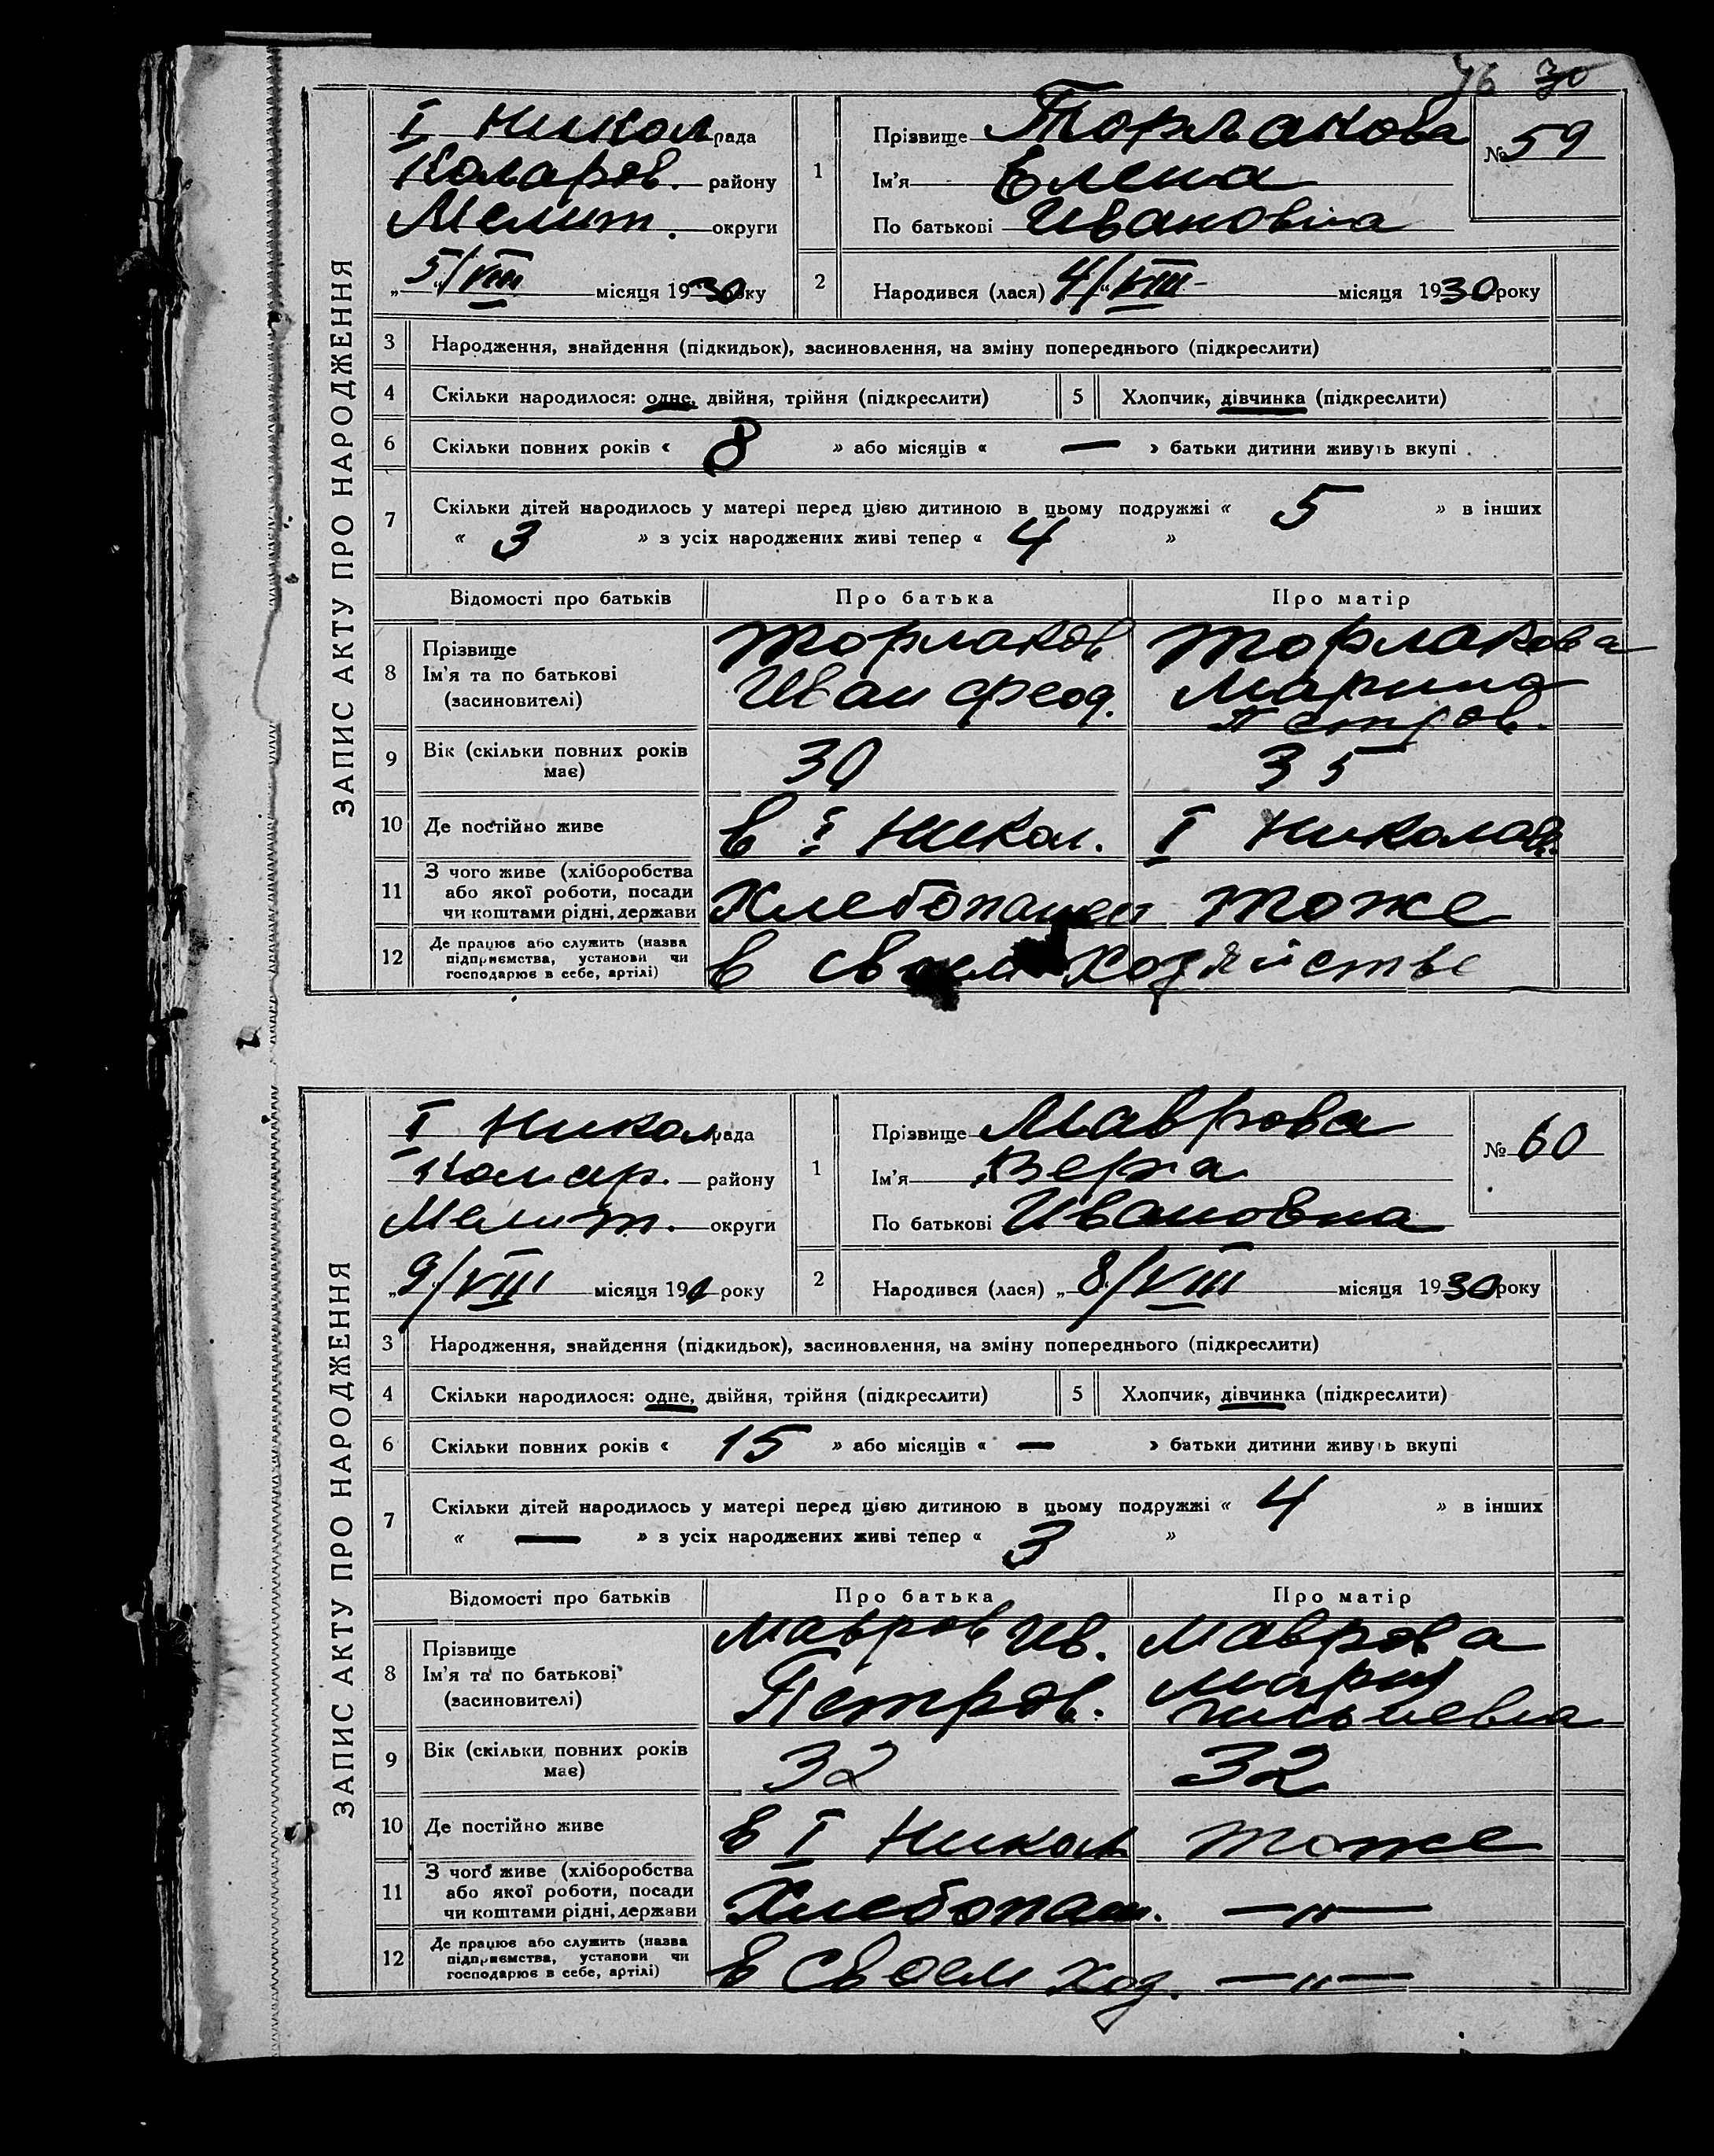 46 30
ЗАПИС АКТУ ПРО НАРОДЖЕННЯ
I Никол рада
Коларов. району
Мелит. округи
„5/VIII місяця 1930 року
1
Прізвище Торлакова
Ім'я Елена
По батькові Ивановна
№ 59
2 Народився (лася) 4/VIII місяця 1930 року
3 Народження, знайдення (підкидьок), засиновлення, на зміну попереднього (підкреслити)
4 Скільки народилося: одне, двійня, трійня (підкреслити) 5 Хлопчик, дівчинка (підкреслити)
6 Скільки повних років « 8 » або місяців « — » батьки дитини живуть вкупі
7 Скільки дітей народилось у матері перед цією дитиною в цьому подружжі « 5 » в інших
« 3 » з усіх народжених живі тепер « 4 »
Відомості про батьків Про батька Про матір
8 Прізвище Ім'я та по батькові (засиновителі)
Торлаков Иван Феод.
Торлакова Марина Петров.
9 Вік (скільки повних років має) 30 35
10 Де постійно живе в I Никол. I Николаев.
11 З чого живе (хліборобства або якої роботи, посади чи коштами рідні, держави Хлебопашец тоже
12 Де працює або служить (назва підприємства, установи чи господарює в себе, артілі) в своем хозяйстве
ЗАПИС АКТУ ПРО НАРОДЖЕННЯ
I Никол рада
Колар. району
Мелит. округи
„9/VIII місяця 19 року
1
Прізвище Маврова
Ім'я Вера
По батькові Ивановна
№ 60
2 Народився (лася) „8/VIII місяця 1930 року
3 Народження, знайдення (підкидьок), засиновлення, на зміну попереднього (підкреслити)
4 Скільки народилося: одне, двійня, трійня (підкреслити) 5 Хлопчик, дівчинка (підкреслити)
6 Скільки повних років « 15 » або місяців « — » батьки дитини живуть вкупі
7 Скільки дітей народилось у матері перед цією дитиною в цьому подружжі « 4 » в інших
« — » з усіх народжених живі тепер « 3 »
Відомості про батьків Про батька Про матір
8 Прізвище Ім'я та по батькові (засиновителі)
Мавров Ив. Петров.
Маврова Мария
9 Вік (скільки повних років має) 32 32
10 Де постійно живе в I Никол тоже
11 З чого живе (хліборобства або якої роботи, посади чи коштами рідні, держави Хлебопаш. —"—
12 Де працює або служить (назва підприємства, установи чи господарює в себе, артілі) в своем хоз. —"—